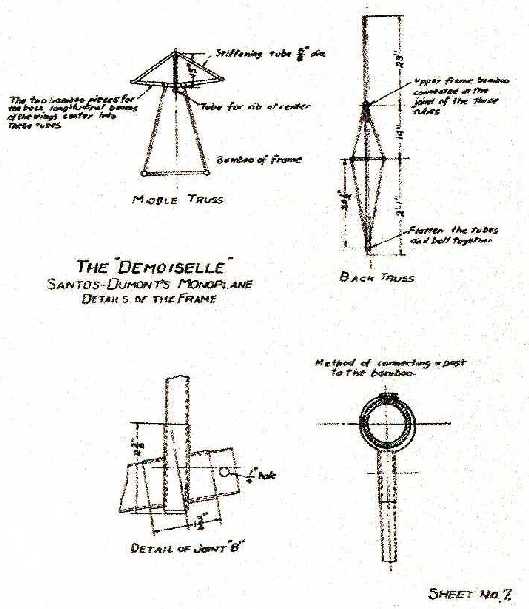 Stiffening tube 5/8" dia.
The two bamboo pieces for
the back longitudinal beams
of the wings center into
these tubes
Tube for rib at center
Bamboo of frame
MIDDLE TRUSS
23"
Upper frame bamboo
connected at the
joint of the three
tubes
14"
2'-1"
Flatten the tubes
and bolt together
BACK TRUSS
THE "DEMOISELLE"
SANTOS-DUMONT'S MONOPLANE
DETAILS OF THE FRAME
hole
DETAIL OF JOINT "B"
Method of connecting a post
to the bamboo.
SHEET NO. 7